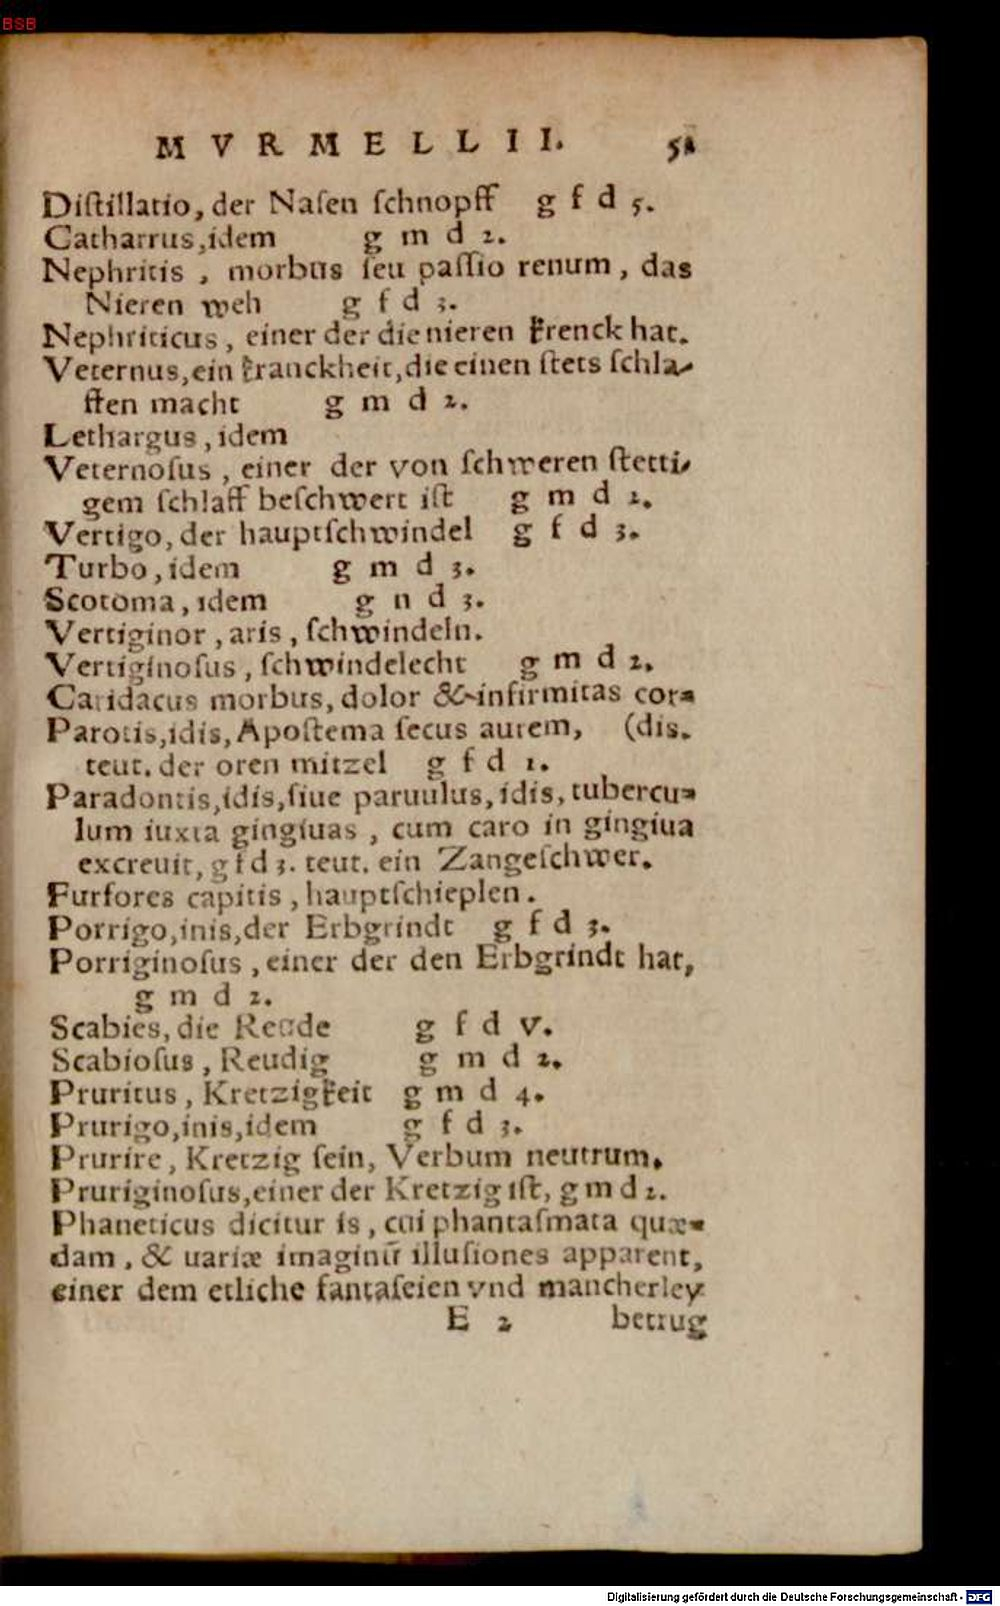 BSB
MVRMELLII. 51
Diſtillatio, der Naſen ſchnopff g f d 5.
Catharrus, idem g m d 2.
Nephritis, morbus ſeu paſſio renum, das
Nieren weh g f d 3.
Nephriticus, einer der die nieren krenck hat.
Veternus, ein kranckheit, die einen ſtets ſchla-
ffen macht g m d 2.
Lethargus, idem
Veternoſus, einer der von ſchweren ſtetti-
gem ſchlaff beſchwert iſt g m d 2.
Vertigo, der hauptſchwindel g f d 3.
Turbo, idem g m d 3.
Scotoma, idem g n d 3.
Vertiginor, aris, ſchwindeln.
Vertiginoſus, ſchwindelecht g m d 2.
Caridacus morbus, dolor & infirmitas cor-
Parotis, idis, Apoſtema ſecus aurem, (dis.
teut. der oren mitzel g f d 1.
Paradontis, idis, ſiue paruulus, idis, tubercu-
lum iuxta gingiuas, cum caro in gingiua
excreuit, g f d 3. teut. ein Zangeſchwer.
Furfores capitis, hauptſchieplen.
Porrigo, inis, der Erbgrindt g f d 3.
Porriginoſus, einer der den Erbgrindt hat,
g m d 2.
Scabies, die Reude g f d v.
Scabioſus, Reudig g m d 2.
Pruritus, Kretzigkeit g m d 4.
Prurigo, inis, idem g f d 3.
Prurire, Kretzig ſein, Verbum neutrum.
Pruriginoſus, einer der Kretzig iſt, g m d 2.
Phaneticus dicitur is, cui phantaſmata quæ-
dam, & uariæ imaginū illuſiones apparent,
einer dem etliche fantaſeien vnd mancherley
E 2 betrug
Digitalisierung gefördert durch die Deutsche Forschungsgemeinschaft - DFG